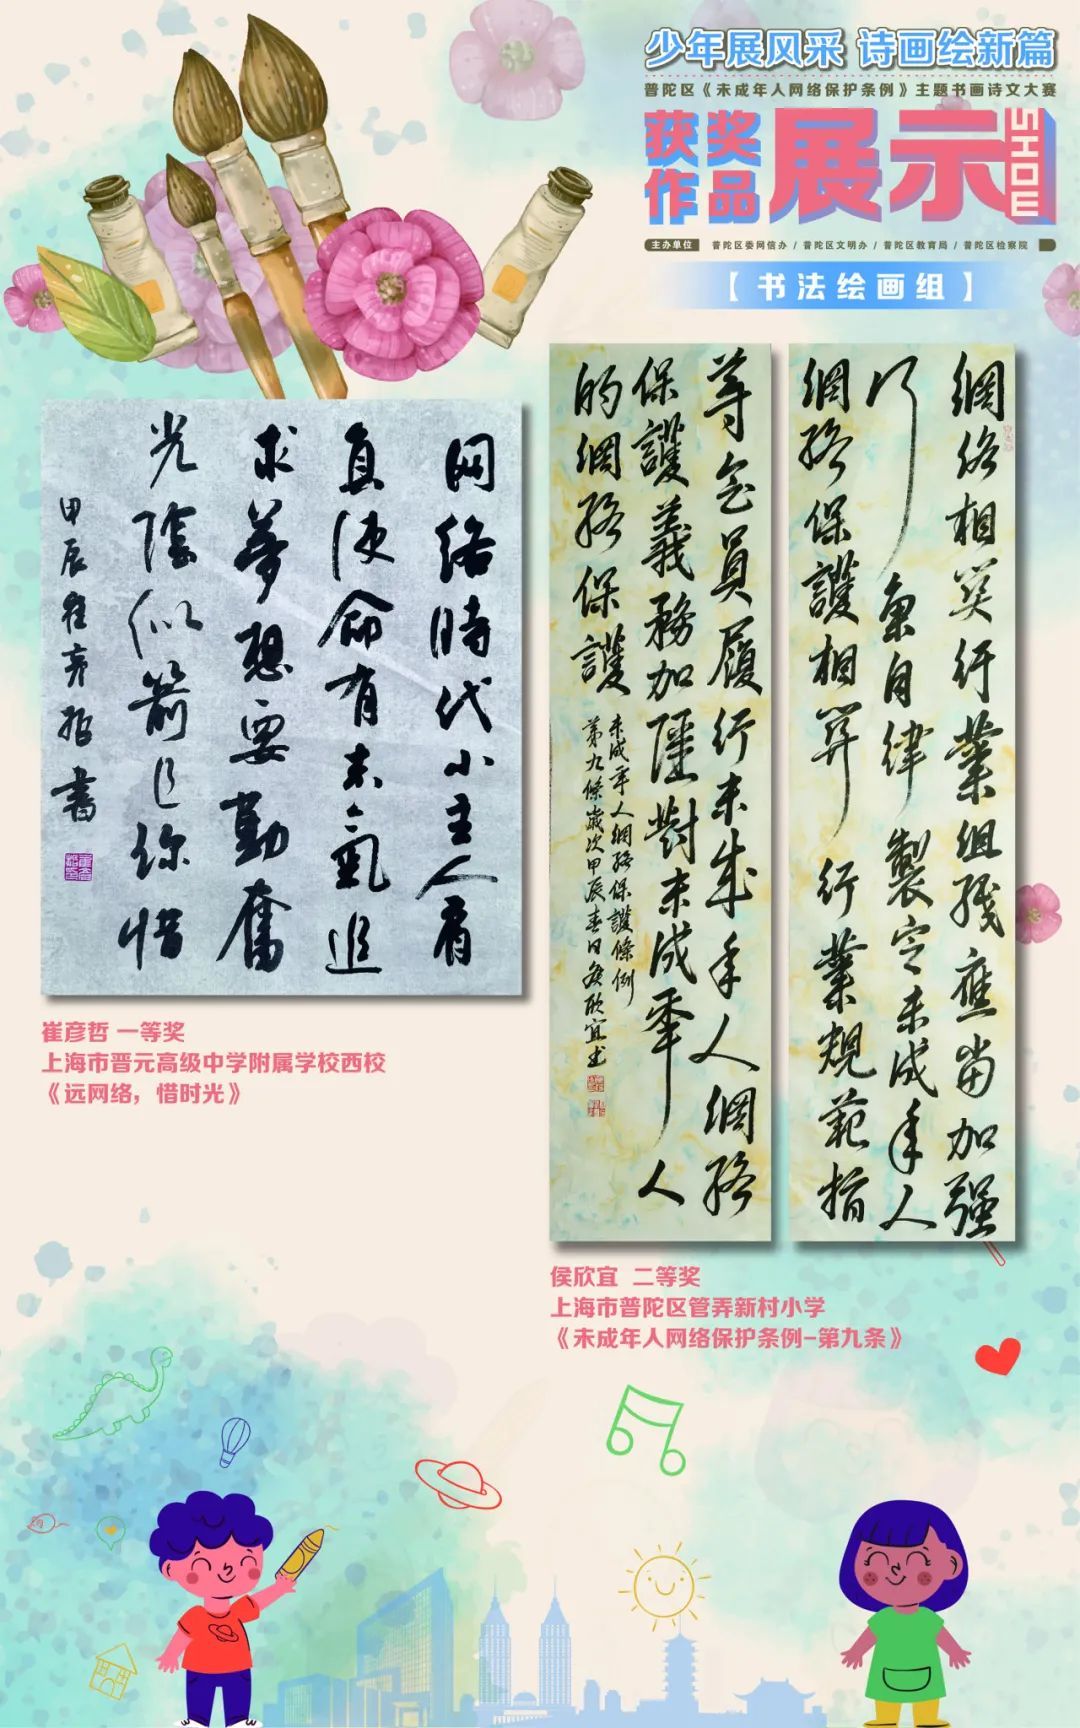 少年展风采 诗画绘新篇
普陀区《未成年人网络保护条例》主题书画诗文大赛
获奖
作品
展示
SHOW
主办单位 普陀区委网信办 / 普陀区文明办 / 普陀区教育局 / 普陀区检察院
【书法绘画组】
网络時代小主人肩
真使命有志氣追
求夢想要勤奮
光陰似箭请珍惜
甲辰崔彦哲書
崔彦哲 一等奖
上海市晋元高级中学附属学校西校
《远网络，惜时光》
網络相关行業组织應当加强
行业自律製定未成年人
網络保護相关行業規範指
導会員履行未成年人網络
保護義務加强對未成年人
的網络保護
未成年人網络保護條例
第九條歲次甲辰春日侯欣宜書
侯欣宜 二等奖
上海市普陀区管弄新村小学
《未成年人网络保护条例-第九条》